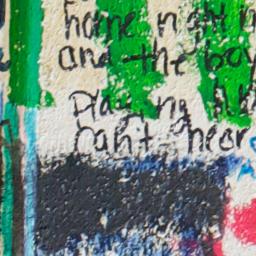 home night
and the boy
Playing
Can't hear